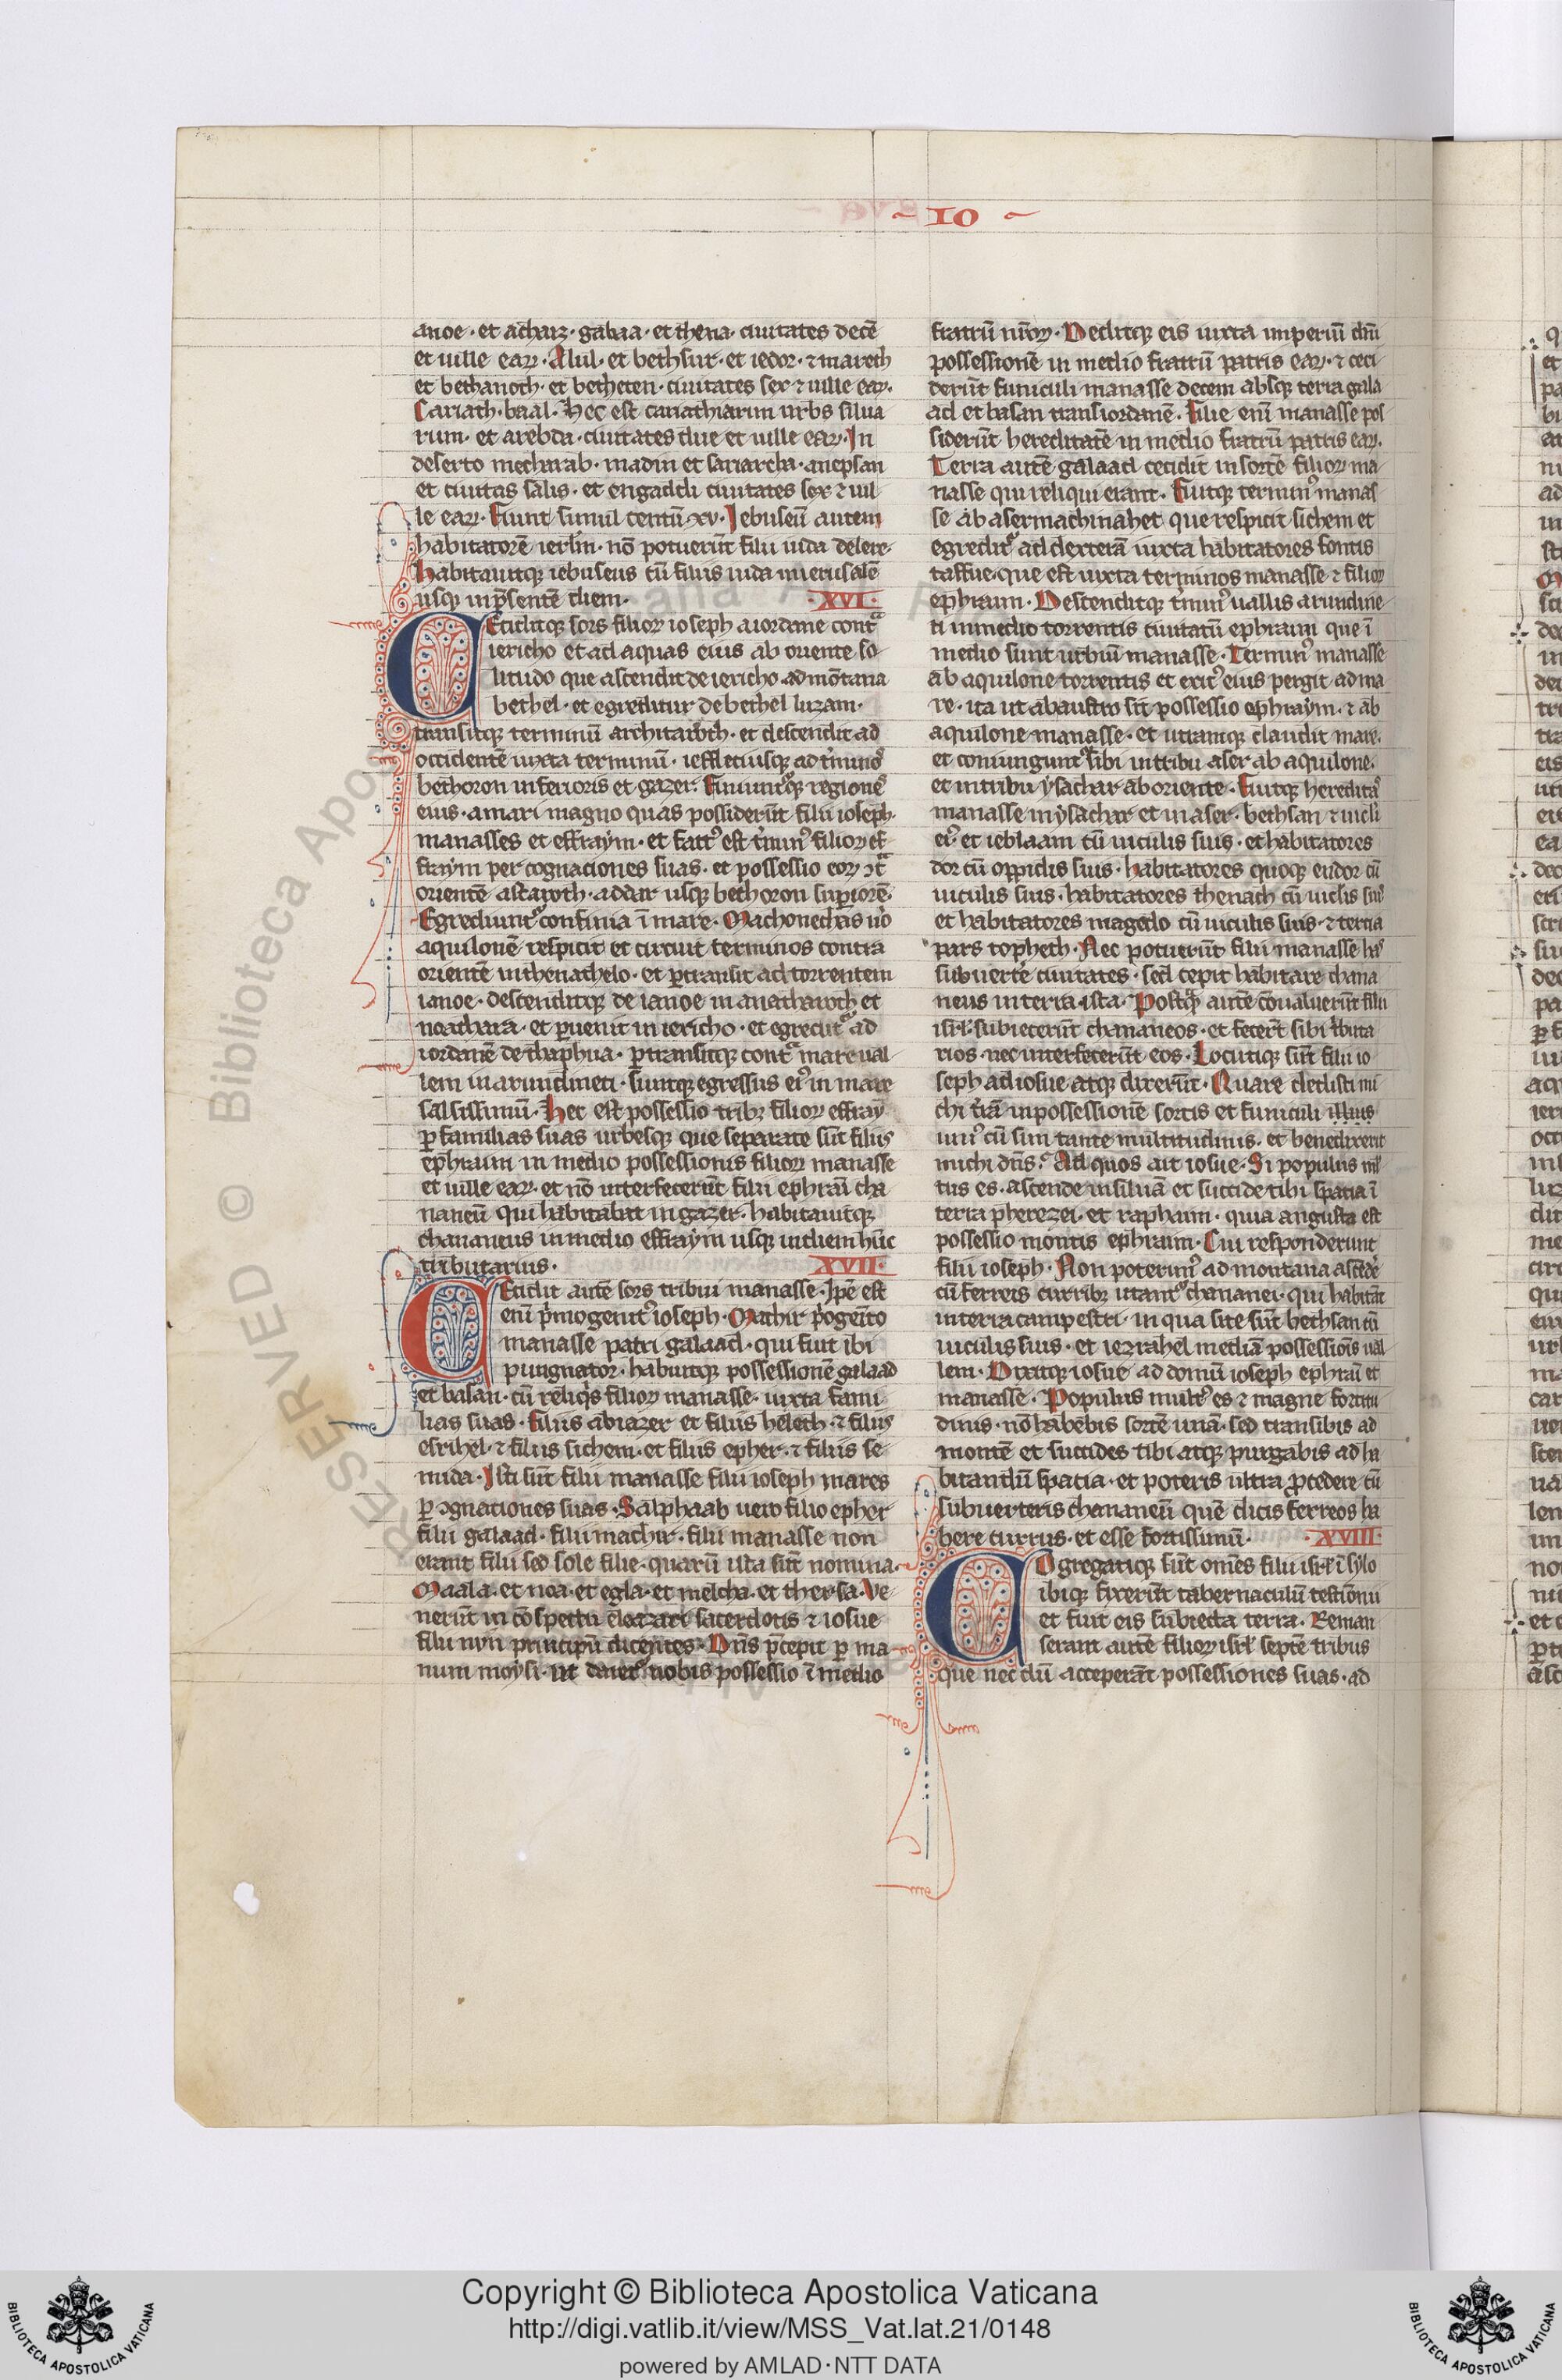 ~ IO ~
anoe · et achaiz · gabaa · et thena · ciuitates decē
et uille eaꝝ · Alul · et bethsur · et iedor · ⁊ mareth
et bethanoth · et betheten · ciuitates sex ⁊ uille eaꝝ ·
Cariath · baal · Hec est cariathiarim urbs silua
rum · et arebda · ciuitates due et uille eaꝝ · In
deserto metharab · madin et sariarcha · anepsan
et ciuitas salis · et engaddi ciuitates sex ⁊ uil
le eaꝝ · Fiunt simul centū · xv · Iebuseū autem
habitatorē ierlm̄ · nō potuerūt filii iuda delere ·
habitauitqꝫ iebuseus cū filiis iuda in ierusalē
usqꝫ in p̄sentē diem · XVI ·
Ceciditqꝫ sors filioꝝ ioseph a iordane contᵃ
iericho et ad aquas eius ab oriente so
litudo que ascendit de iericho ad mōtana
bethel · et egreditur de bethel luzam ·
transitqꝫ terminū architaroth · et descendit ad
occidentē iuxta terminū · ieffleti usqꝫ ad t̓minos
bethoron inferioris et gazer · Finiuntᷣqꝫ regiones
eius · a mari magno quas possiderūt filii ioseph ·
manasses et effraym · et fact᷒ est t̓min᷒ filioꝝ ef
fraym per cognaciones suas · et possessio eoꝝ ↄᵗᵃ
orientē astaroth · addar usqꝫ bethoron superiorē ·
Egrediuntᷣ confinia ī mare · Machonethas ūo
aquilonē respicit et circuit terminos contra
orientē in thenathelo · et ꝑtransit ad torrentem
ianoe · descenditqꝫ de ianoe in anatharoth et
noathara · et ꝑuenit in iericho · et egreditᷣ ad
iordanē de thaphua · ꝑtransitqꝫ contᵃ mare ual
lem in arundineti · suntqꝫ egressus ei᷒ in mare
salsissimū · Hec est possessio tribꝫ filioꝝ effraȳ
ꝑ familias suas urbesqꝫ que separate sūt filiis
ephraim in medio possessionis filioꝝ manasse
et uille eaꝝ · et nō interfecerūt filii ephraī cha
naneū qui habitabat in gazer · habitauitqꝫ
chananeus in medio effraym usqꝫ in diem hūc
tributarius · XVII ·
Cecidit autē sors tribui manasse · Ip̄e est
enī p̓mogenit᷒ ioseph · Machir p̓ogēito
manasse patri galaad · qui fuit ibi
pungnator · habuitqꝫ possessionē galaad
et basan · cū reliq̓s filioꝝ manasse · iuxta fami
lias suas · Filiis abiazer et filiis heleth · ⁊ filiis
esrihel · ⁊ filiis sichem · et filiis epher · ⁊ filiis se
mida · Isti sūt filii manasse filii ioseph mares
ꝑ ↄgnationes suas · Salphaab uero filio epher
filii galaad · filii machir · filii manasse non
erant filii sed sole filie · quarū ista sūt nomina ·
Maala · et noa · et egla · et melcha · et thersa · Ve
nerūt in cōspectu eleazari sacerdotis ⁊ iosue
filii nun principū dicentes · Dn̄s p̄cepit ꝑ ma
num moysi · ut daretᷣ nobis possessio ī medio
fratrū nr̄oꝝ · Deditqꝫ eis iuxta imperiū dn̄i
possessionē in medio fratrū patris eaꝝ · ⁊ ceci
derūt funiculi manasse decem absqꝫ terra gala
ad et basan trans iordanē · Filie enī manasse pos
siderūt hereditatē in medio fratrū patris eaꝝ ·
Terra autē galaad cecidit in sortē filioꝝ ma
nasse qui reliqui erant · Fuitqꝫ termin᷒ manas
se ab aser machinahet que respicit sichem et
egreditᷣ ad dexterā iuxta habitatores fontis
taffue · que est iuxta terminos manasse ⁊ filioꝝ
ephraim · Descenditqꝫ t̓min᷒ uallis arundine
ti in medio torrentis ciuitatū ephraim que ī
medio sunt urbiū manasse · Termin᷒ manasse
ab aquilone torrentis et exit᷒ eius pergit ad ma
re · ita ut ab austro sit possessio ephraym · ⁊ ab
aquilone manasse · et utramqꝫ claudit mare ·
et coniunguntᷣ sibi in tribu aser ab aquilone ·
et in tribu ysachar ab oriente · Fuitqꝫ hereditas
manasse in ysachar et in aser · bethsan ⁊ uicli
ei᷒ · et ieblaam cū uiculis suis · et habitatores
dor cū oppidis suis · habitatores quoqꝫ endor cū
uiculis suis · habitatores thenach cū uiclis suis
et habitatores magedo cū uiculis suis · ⁊ tercia
pars topheth · Nec potuerūt filii manasse has
subuertere ciuitates · sed cepit habitare chana
neus in terra ista · Postqꝫ autē cōualuerūt filii
isrl̄ · subiecerūt chananeos · et fecerūt sibi t̓buta
rios · nec interfecerūt eos · Locutiqꝫ sūt filii io
seph ad iosue atqꝫ dixerūt · Quare dedisti mi
chi t̓rā in possessionē sortis et funiculi illius
uni᷒ cū sim tante multitudinis · et benedixerit
michi dn̄s · Ad quos ait iosue · Si populus ml̓
tus es · ascende in siluā et succide tibi spatia ī
terra pherezei · et raphaim · quia angusta est
possessio montis ephraim · Cui responderunt
filii ioseph · Non poterim᷒ ad montana ascēde̓
cū ferreis curribꝫ utantᷣ chananei · qui habitāt
in terra campestri · in qua site sūt bethsan cū
uiculis suis · et iezrahel mediā possessiōis ual
lem · Dixitqꝫ iosue ad domū ioseph ephraī et
manasse · Populus mult᷒ es ⁊ magne fortitu
dinis · nō habebis sortē unā · sed transibis ad
montē et succides tibi atqꝫ purgabis ad ha
bitandū spacia · et poteris ultra ꝓcedere cū
subuerteris chananeū quē dicis ferreos ha
bere currus · et esse fortissimū · XVIII ·
COgregatiqꝫ sūt om̄es filii isrl̄ ī sylo
ibiqꝫ fixerūt tabernaculū testīonii
et fuit eis subiecta terra · Reman
serant autē filioꝝ isrl̄ septē tribus
que nec dū acceperāt possessiones suas · ad
RESERVED © Biblioteca Apostolica Vaticana
Copyright © Biblioteca Apostolica Vaticana
http://digi.vatlib.it/view/MSS_Vat.lat.21/0148
powered by AMLAD · NTT DATA
BIBLIOTECA APOSTOLICA VATICANA
BIBLIOTECA APOSTOLICA VATICANA